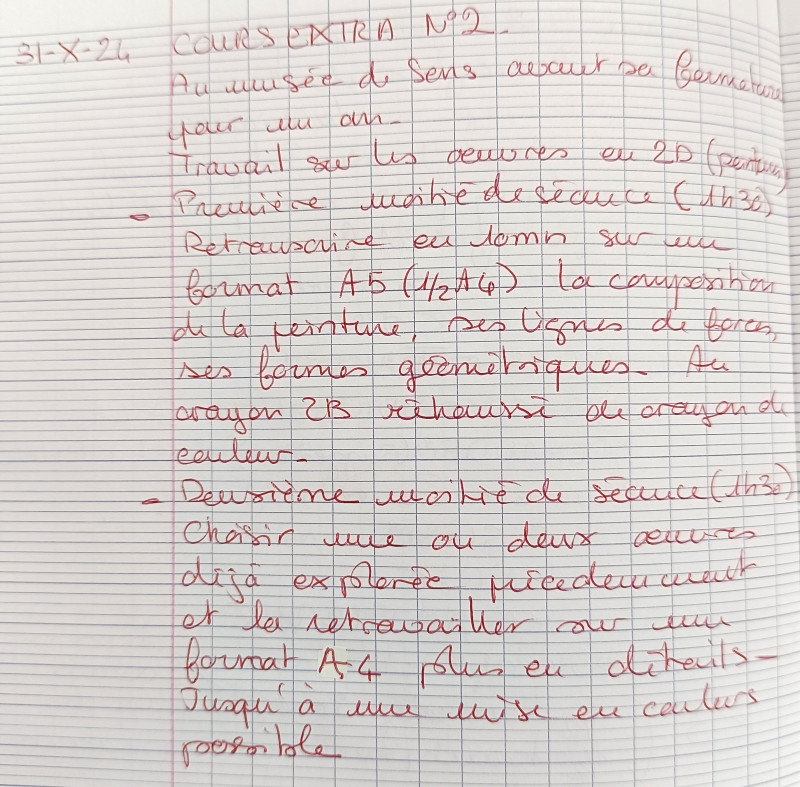 31-X-24 COURS EXTRA N°2.
Au musée de Sens avant sa fermeture
pour un an-
Travail sur les oeuvres en 2D (peinture)
- Première moitié de séance (1h30)
Retranscrire en 10mn sur un
format A5 (1/2 A4) la composition
de la peinture, ses lignes de forces,
ses formes géométriques. Au
crayon 2B réhaussé de crayon de
couleur-
- Deuxième moitié de séance (1h30)
Choisir une ou deux oeuvres
déjà explorée précedemment
et la retravailler sur un
format A-4 plus en détails-
Jusqu'à une mise en couleurs
possible